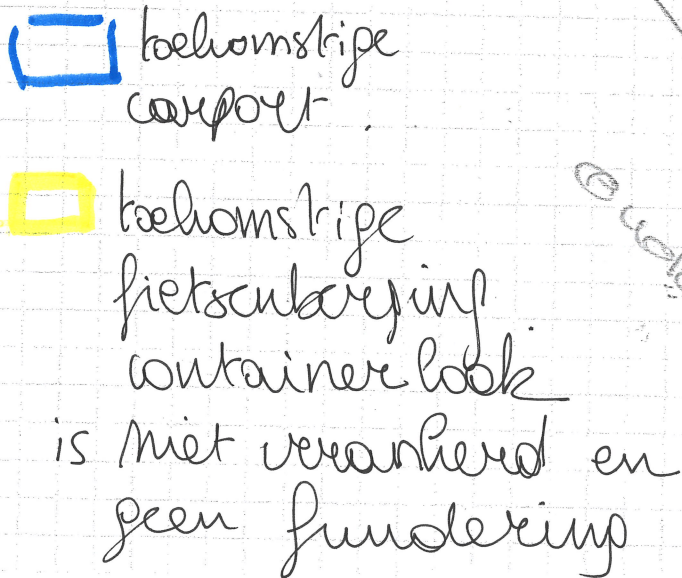 toekomstige
carport.
toekomstige
fietsenberging
container look
is niet verankerd en
geen fundering